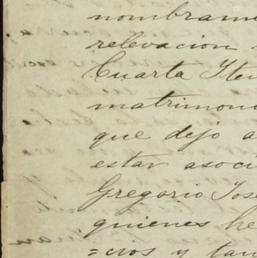 nombramie
relevacion
Cuarta Iten
matrimoni
que dejo a
estar asoci
Gregorio Jos
quienes he
=cios y tan